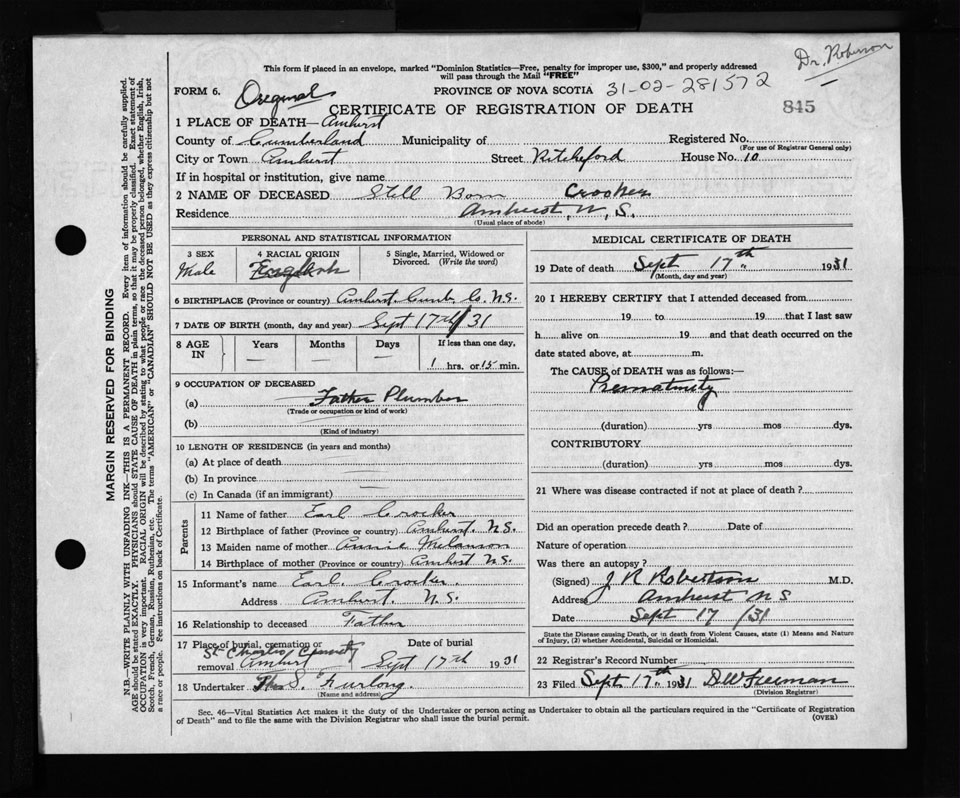 Dr. Robinson
This form if placed in an envelope, marked "Dominion Statistics—Free, penalty for improper use, $300," and properly addressed
will pass through the Mail "FREE"
FORM 6. Original PROVINCE OF NOVA SCOTIA 31-02-281572
CERTIFICATE OF REGISTRATION OF DEATH 845
1 PLACE OF DEATH—Amherst
County of Cumberland Municipality of Registered No.
(For use of Registrar General only)
City or Town Amherst Street House No. 10
If in hospital or institution, give name
2 NAME OF DECEASED Still Born Crocker
Residence Amherst, N, S.
(Usual place of abode)
PERSONAL AND STATISTICAL INFORMATION
3 SEX 4 RACIAL ORIGIN 5 Single, Married, Widowed or
Divorced. (Write the word)
Male English
6 BIRTHPLACE (Province or country) Amherst. Cumb. Co. N.S.
7 DATE OF BIRTH (month, day and year) Sept 17th/31
8 AGE IN Years Months Days If less than one day,
1 hrs. or 15 min.
9 OCCUPATION OF DECEASED
(a) Father Plumber
(Trade or occupation or kind of work)
(b)
(Kind of industry)
10 LENGTH OF RESIDENCE (in years and months)
(a) At place of death
(b) In province
(c) In Canada (if an immigrant)
Parents
11 Name of father Earl Crocker
12 Birthplace of father (Province or country) Amherst. N.S.
13 Maiden name of mother Annie Melanson
14 Birthplace of mother (Province or country) Amhest N.S.
15 Informant's name Earl Crocker.
Address Amherst. N.S.
16 Relationship to deceased Father
17 Place of burial, cremation or Date of burial
St Charles
removal Amherst Sept 17th 1931
18 Undertaker Thos S. Furlong.
(Name and address)
MEDICAL CERTIFICATE OF DEATH
19 Date of death Sept 17th 1931
(Month, day and year)
20 I HEREBY CERTIFY that I attended deceased from
19 to 19 that I last saw
h alive on 19 and that death occurred on the
date stated above, at m.
The CAUSE of DEATH was as follows:—
Prematurity
(duration) yrs mos dys.
CONTRIBUTORY
(duration) yrs mos dys.
21 Where was disease contracted if not at place of death?
Did an operation precede death? Date of
Nature of operation
Was there an autopsy?
(Signed) J R Robertson M.D.
Address Amherst N S
Date Sept 17 /31
State the Disease causing Death, or in death from Violent Causes, state (1) Means and Nature
of Injury, (2) whether Accidental, Suicidal or Homicidal.
22 Registrar's Record Number
23 Filed Sept 17th 1931 DW Freeman
(Division Registrar)
Sec. 46—Vital Statistics Act makes it the duty of the Undertaker or person acting as Undertaker to obtain all the particulars required in the "Certificate of Registration
of Death" and to file the same with the Division Registrar who shall issue the burial permit.
(OVER)
MARGIN RESERVED FOR BINDING
N.B.—WRITE PLAINLY WITH UNFADING INK—THIS IS A PERMANENT RECORD. Every item of information should be carefully supplied.
AGE should be stated EXACTLY. PHYSICIANS should STATE CAUSE OF DEATH in plain terms, so that it may be properly classified. Exact statement of
OCCUPATION is very important. RACIAL ORIGIN will be described by stating to what people or race the deceased person belonged, whether English, Irish,
Scotch, French, German, Russian, Ruthenian, etc. The terms "AMERICAN" or "CANADIAN" SHOULD NOT BE USED as they express citizenship but not
a race or people. Fee instructions on back of Certificate.